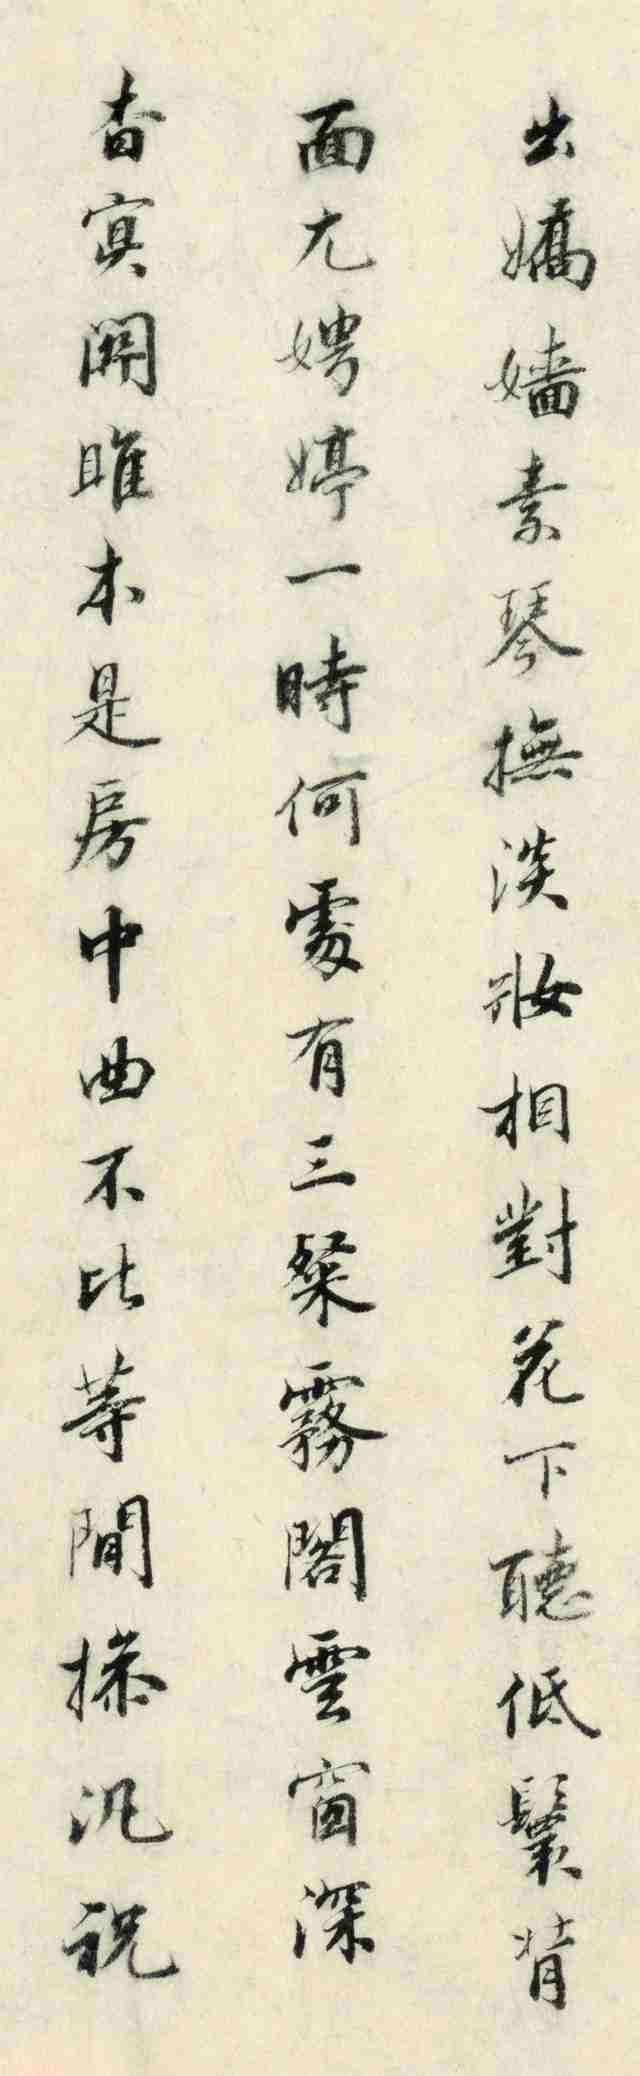 出嬌嬙素琴撫淡妝相對花下聽低鬟背
面尤娉婷一時何處有三粲霧閣雲窗深
杳冥關雎本是房中曲不比等閒操汎祝